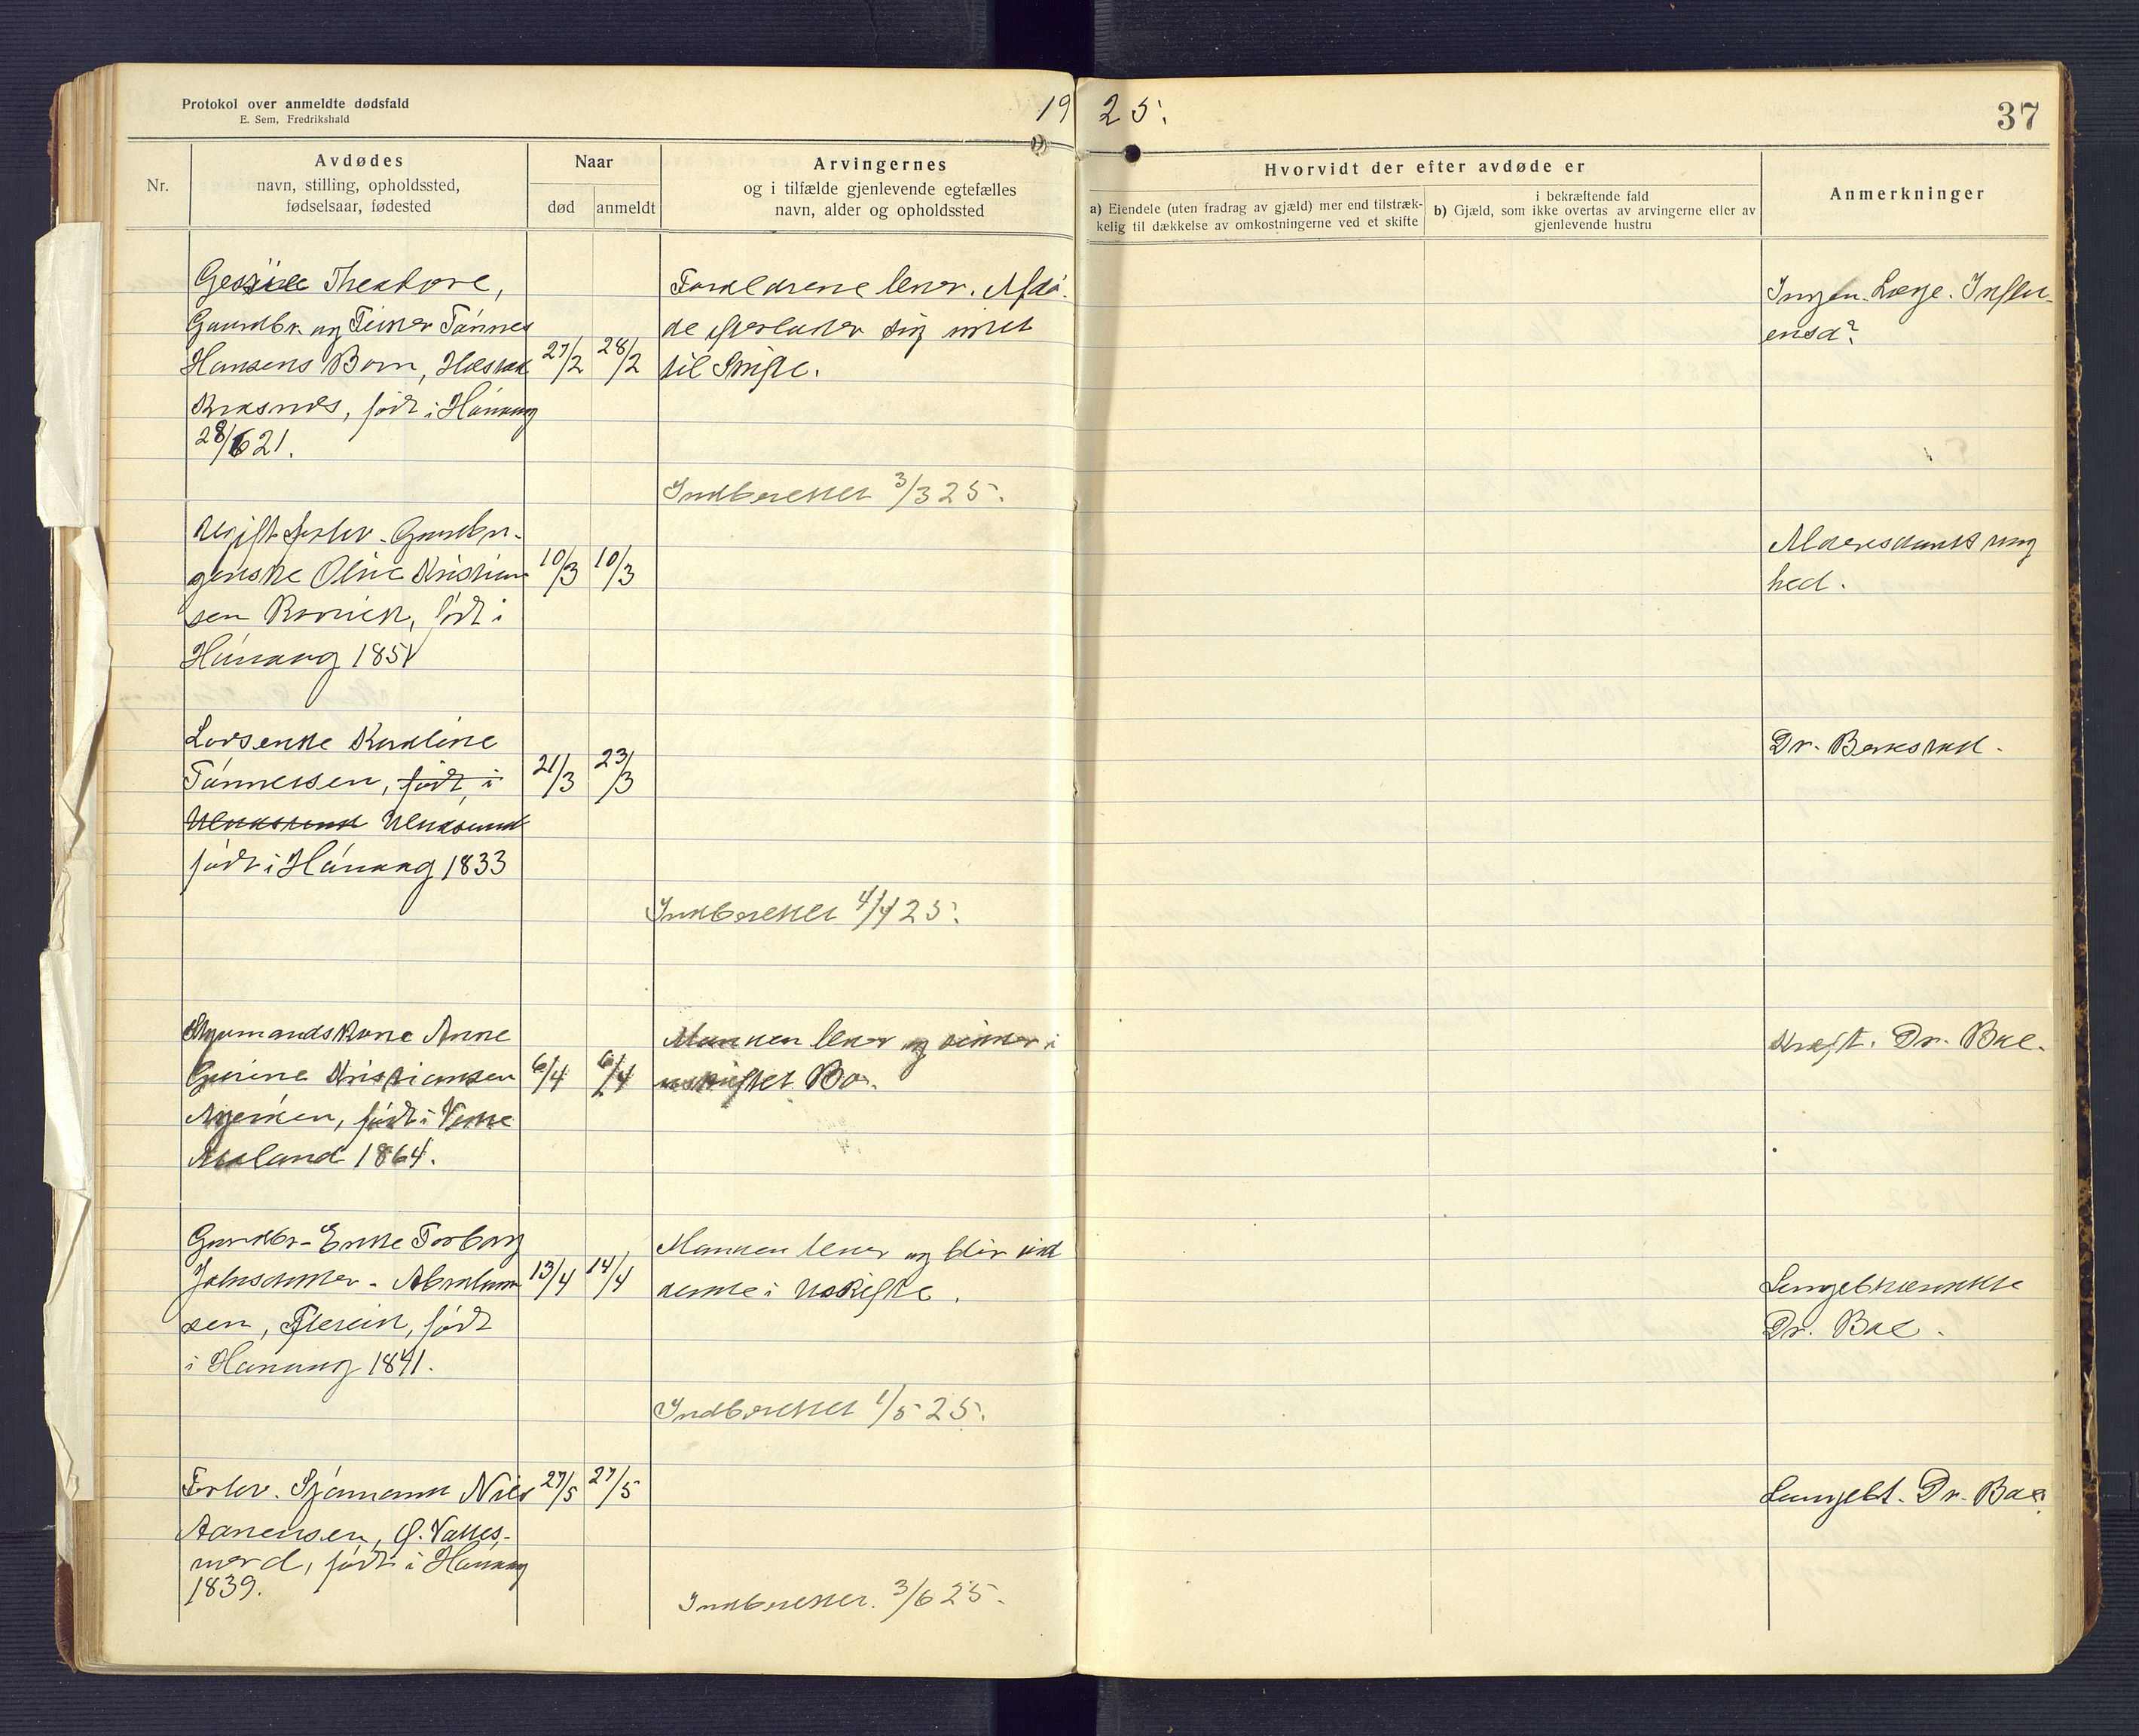 Protokol over anmeldte dødsfald
E. Sem, Fredrikshald
1925.
37
Nr.
Avdødes
navn, stilling, opholdssted,
fødselsaar, fødested
Naar
død
anmeldt
Arvingernes
og i tilfælde gjenlevende egtefælles
navn, alder og opholdssted
Hvorvidt der efter avdøde er
a) Eiendele (uten fradrag av gjæld) mer end tilstræk-
kelig til dækkelse av omkostningerne ved et skifte
i bekræftende fald
b) Gjæld, som ikke overtas av arvingerne eller av
gjenlevende hustru
Anmerkninger
Theodore,
Gaardbr. og Tønnes
Hansens Barn,
født i Hånang
28/6 21.
27/2 28/2
Forældrene lever. Afdø-
de efterlader sig intet
til Skifte.
Ingen Læge. Influ-
ensa?
Indberettet 3/3 25.
Ugift forhv. Gaardbr.
Olene Kristian
sen født i
Hånang 1851
10/3 10/3
Alderdomssvag
hed.
Lovsenne Karoline
Tønnessen, født i
født i Hånang 1833
21/3 23/3
Dr.
Indberettet 4/4 25.
Styrmandskone Anne
Gurine Kristiansen
født i Vestre
1864.
6/4 6/4
Manden lever og sidder i
uskiftet Bo.
Kræft. Dr. Boe.
Gaardbr. Torborg
Abraham
sen, født
i Hånang 1841.
13/4 14/4
Manden lever og blir sid
dende i Uskifte.
Lungebetændelse
Dr. Boe.
Indberettet 1/5 25.
Forhv. Sjømann Nils
Aanensen, Ø. Vatnes-
født i Hånang
1839.
27/5 27/5
Lungebt. Dr. Boe.
Indberettet. 3/6 25.